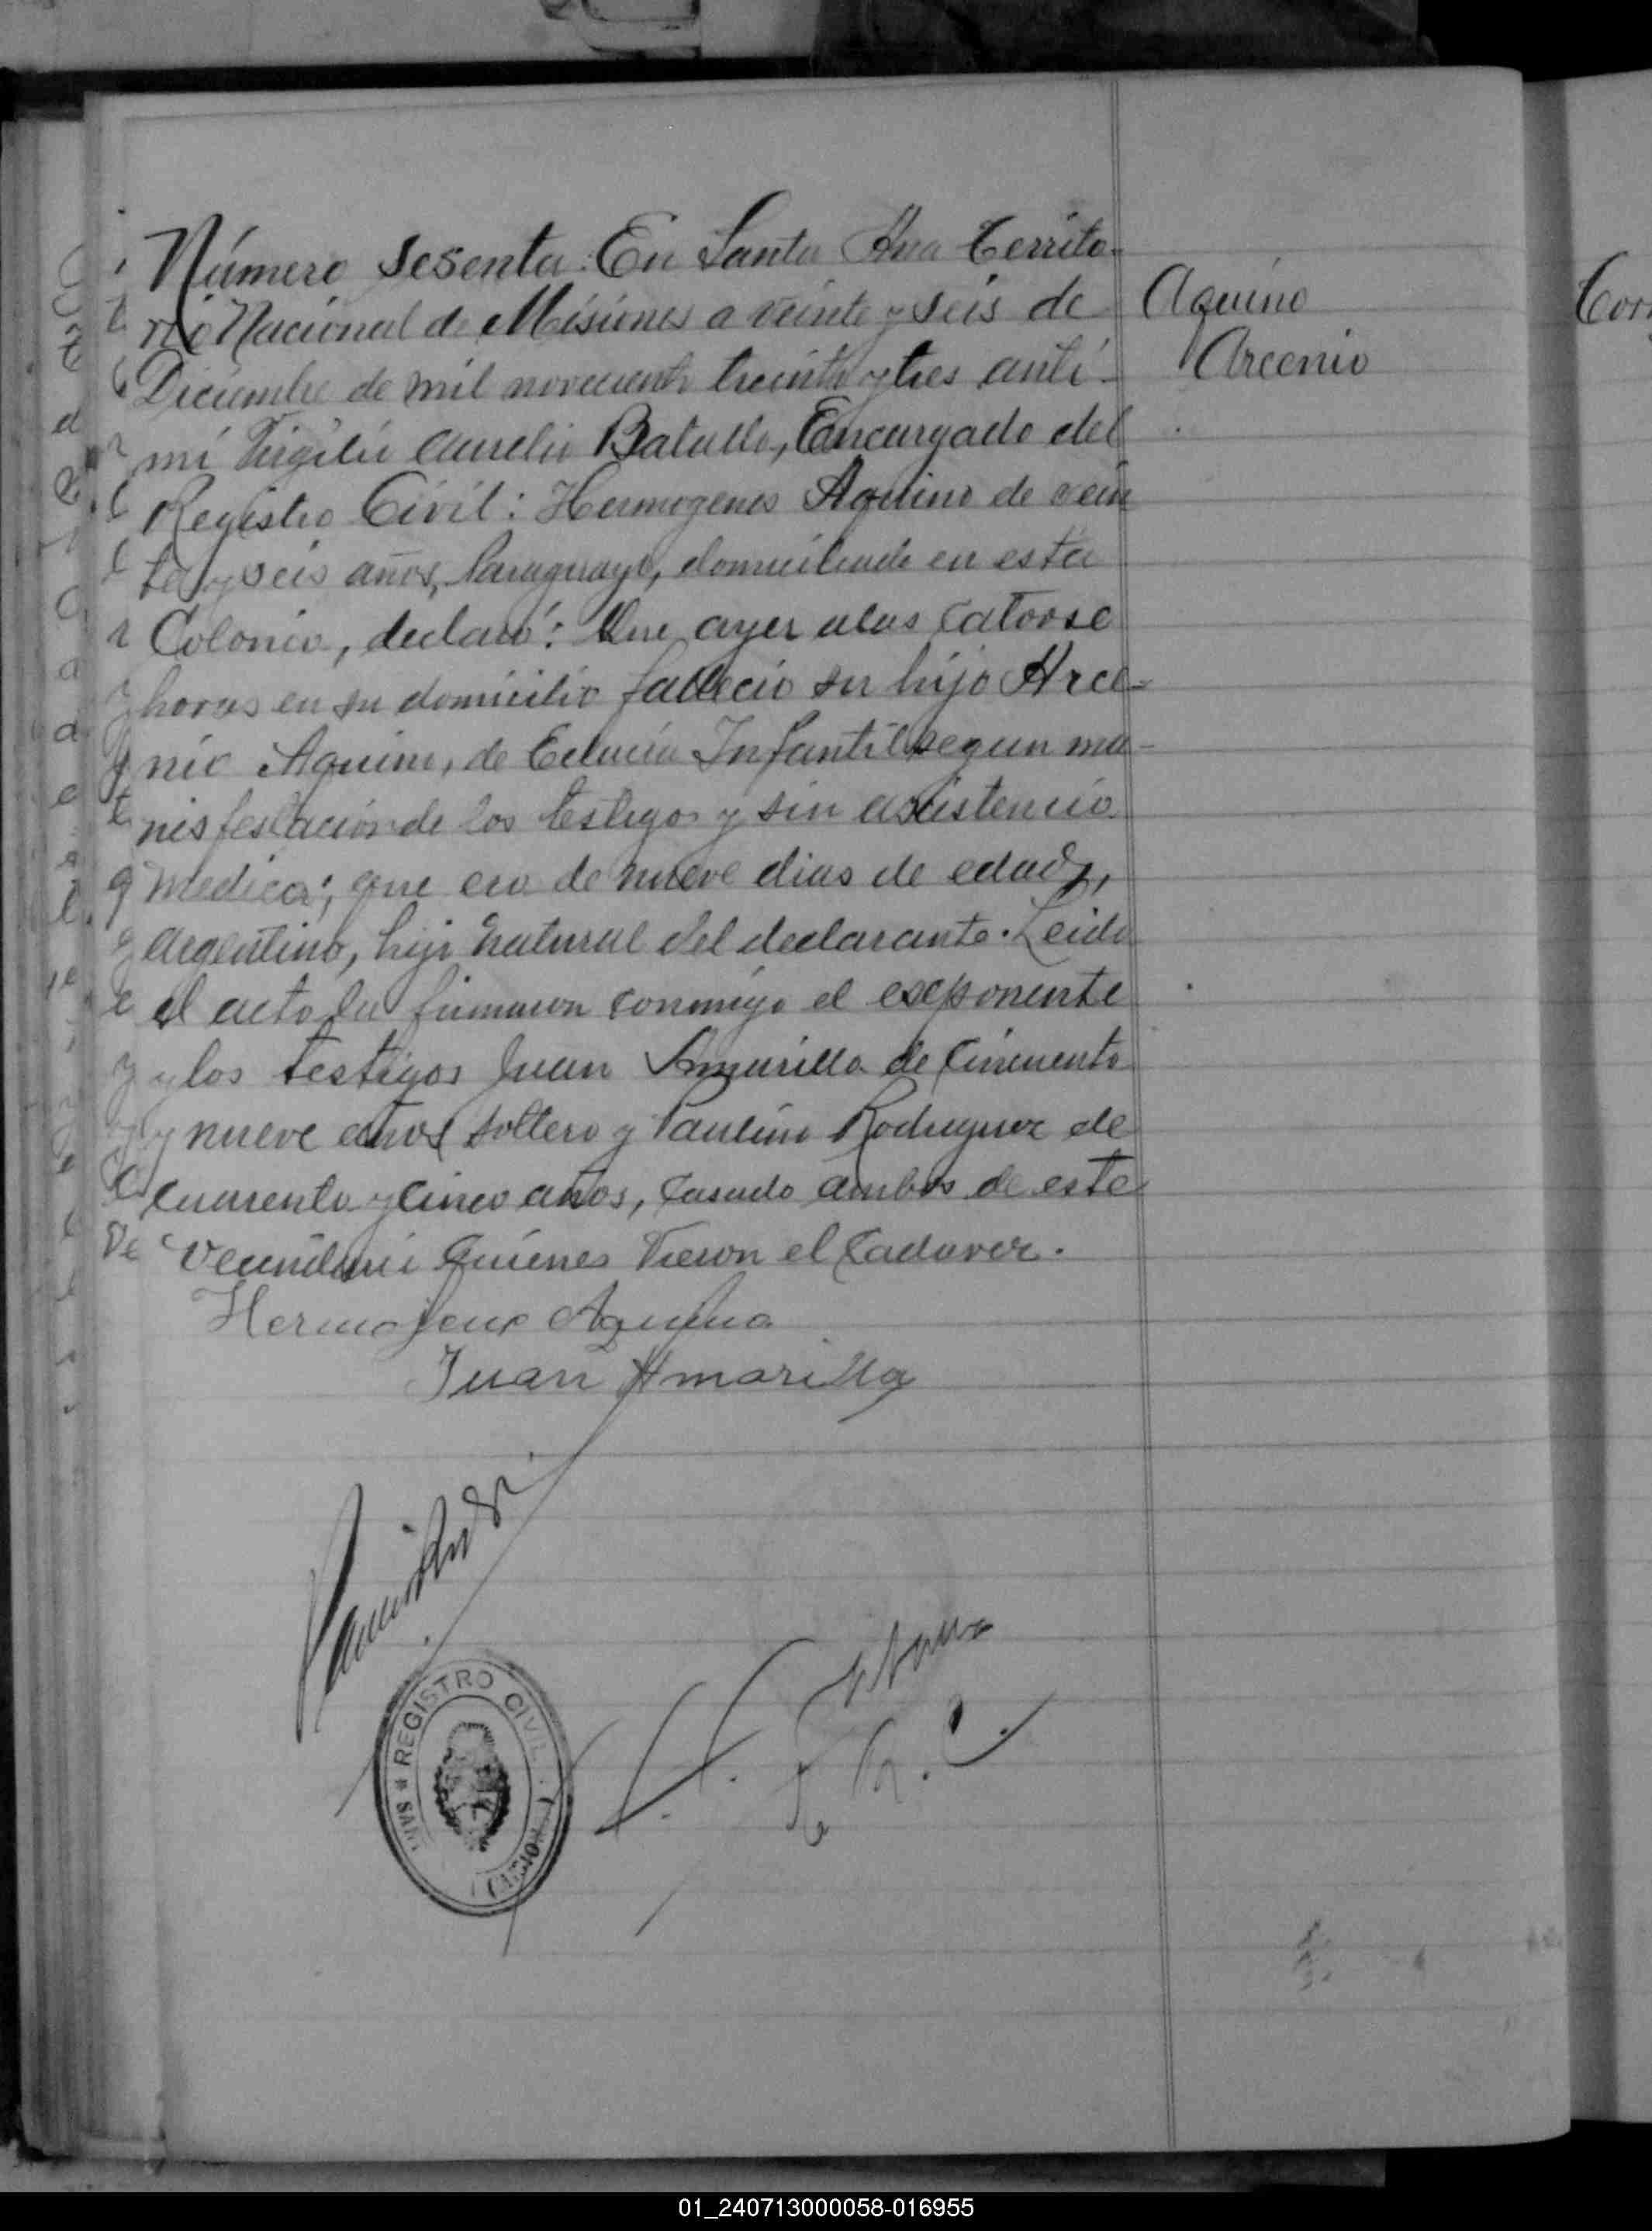 Número sesenta. En Santa Ana Territo-
rio Nacional de Misiones a veinte y seis de
Diciembre de mil novecientos treinta y tres anti-
mi Virgilio Aurelio Batalla, Encargado del
Registro Civil: Hermogenes Aquino de vein
te y seis años, Paraguayo, domiciliado en esta
Colonia, declaró: Que ayer a las catorse
horas en su domicilio fallecio su hijo Arce-
nio Aquino, de Eclancia Infantil segun ma-
nisfestacion de los testigos y sin asistencia
medica; que era de nueve dias de edad,
argentino, hijo natural del declarante. Leida
el acta la firmaron conmigo el exsponente
y los testigos Juan Amarilla de cincuenta
y nueve años soltero y Paulino Rodriguez de
cuarenta y cinco años, casado ambos de este
vecindario quienes vieron el cadaver.
Aquino
Arcenio
Hermojene Aquino
Juan Amarilla
REGISTRO CIVIL
01_240713000058-016955